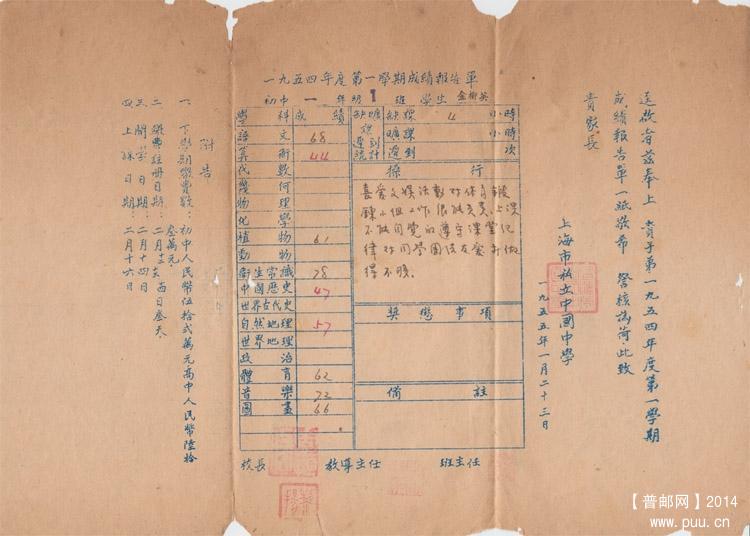 逕啟者茲奉上 貴子弟一九五四年度第一學期
成績報告單一紙敬希 詧核為荷・此致
貴家長
上海市私立中國中學
一九五五年一月二十三日
一九五四年度第一學期成績報告單
初中一年級1班 學生 金樹英
學科 成績
語文 68
算術 44
代數
幾何
物理
化學
植物 61
動物
衛生常識 78
中國歷史 47
世界古代史
自然地理 57
世界地理
政治
體育 62
音樂 72
圖畫 66
缺曠課遲到統計
缺課 4 小時
曠課 小時
遲到 次
操行
喜爱文娱活動 对体育鍛
鍊小組工作很能負責、上課
不能自覺的遵守課堂紀
律 对同學團结友爱 做
得不够。
獎懲事項
備註
校長 教導主任 班主任
附告
一、下學期學費數：初中人民幣伍拾弍萬元高中人民幣陸拾
叁萬元.
二、繳費註冊日期：二月十
三、開學日期：二月十四日
四、上課日期：二月十六日
【普邮网】2014
www.puu.cn